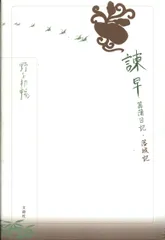 諫早
菖蒲日記・落城記
野呂邦暢